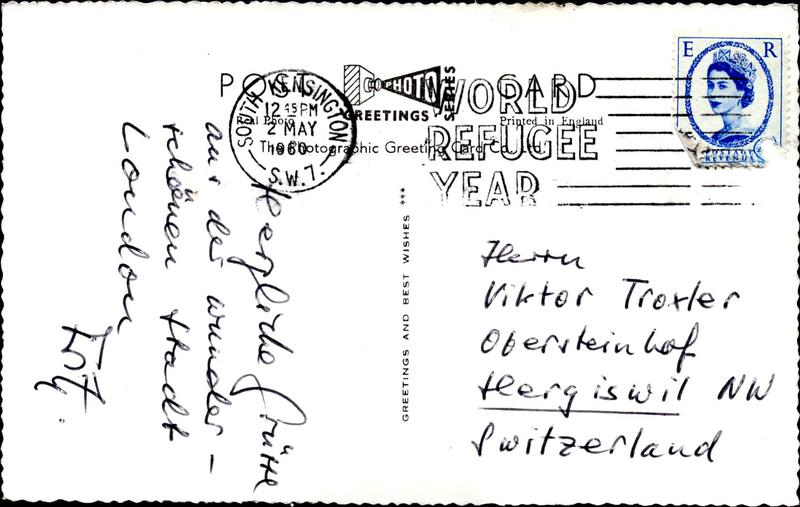 POST CARD
COPHOTO
GREETINGS
SERIES
Real Photo
Printed in England
The Photographic Greeting Card Co., Ltd.
SOUTH KENSINGTON
12 45 PM
2 MAY
1960
S.W.7.
WORLD
REFUGEE
YEAR
E R
POSTAGE
REVENUE
Herzliche Grüsse
aus der wunder-
schönen Stadt
London
GREETINGS AND BEST WISHES ***
Herrn
Viktor Troxler
Obersteinhof
Hergiswil NW
Switzerland